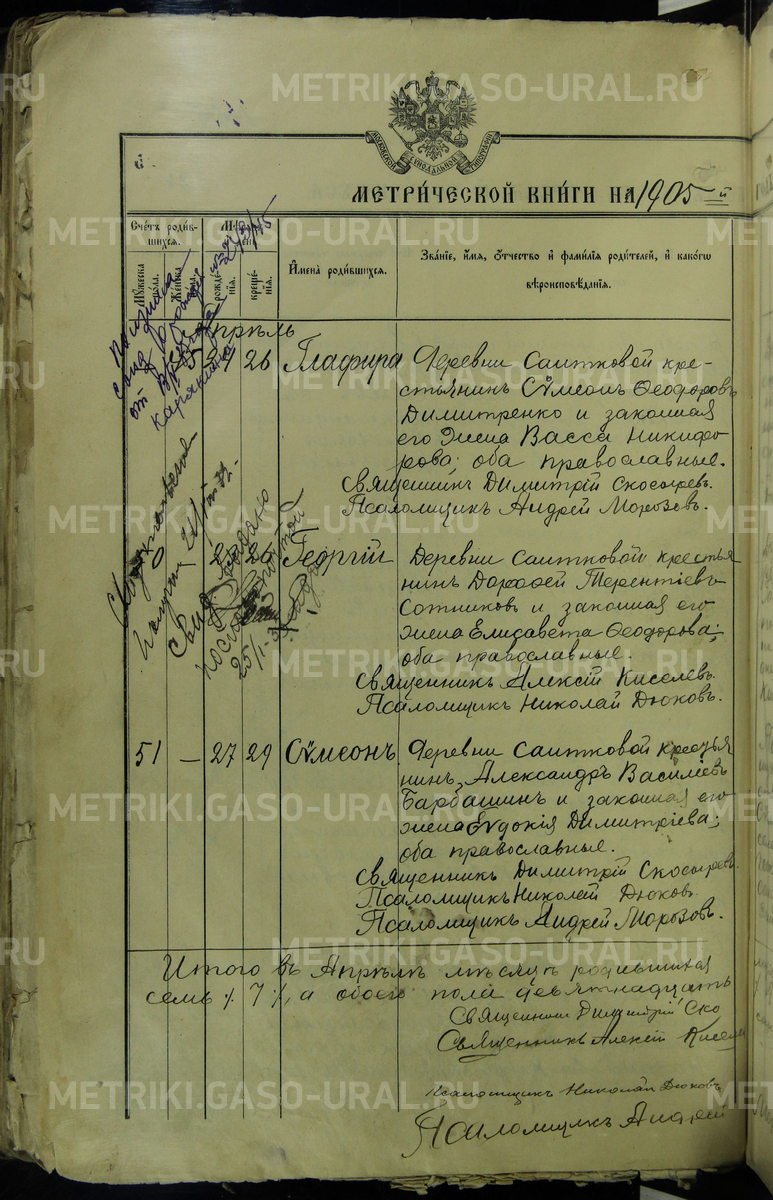 METRIKI.GASO-URAL.RU
МОСКОВСКОЙ СѴНОДАЛЬНОЙ ТИПОГРАФІИ
МЕТРИ́ЧЕСКОЙ КНИ́ГИ НА 1905 й
Сче́тъ роди́вшихся.
Му́жеска по́ла.
Же́нска по́ла.
рожде́нія.
креще́нія.
И҆мена̀ роди́вшихся.
Зва́нїе, и҆́мѧ, Ѻ҆́тчество и҆ фами́лїѧ роди́телей, и҆ како́гѡ вѣроисповѣ́данїѧ.
Апрѣль
26 Глафира
Деревни Саитковой крестьянинъ Сѵмеонъ Ѳеодоровъ
Димитренко и законная
его жена Васса Никифорова; оба православные.
Священникъ Димитрій Скосыревъ.
Псаломщикъ Андрей Морозовъ.
Георгій
Деревни Саитковой крестьянинъ Дороѳей Терентіевъ
Сотниковъ и законная его
жена Елисавета Ѳеодорова;
оба православные.
Священникъ Алексій Киселевъ.
Псаломщикъ Николай Дюковъ.
51 — 27 29 Сѵмеонъ
Деревни Саитковой крестьянинъ Александръ Василіевъ
Барбашинъ и законная его
жена Евдокія Димитріева;
оба православные.
Священникъ Димитрій Скосыревъ.
Псаломщикъ Николай Дюковъ.
Псаломщикъ Андрей Морозовъ.
Итого въ Апрѣлѣ мѣсяцѣ родившихся
семь /7/, а обоего пола девятнадцать
Священникъ Димитрій Ско
Священникъ Алексій Кисел
Псаломщикъ Николай Дюковъ
Псаломщикъ Андрей